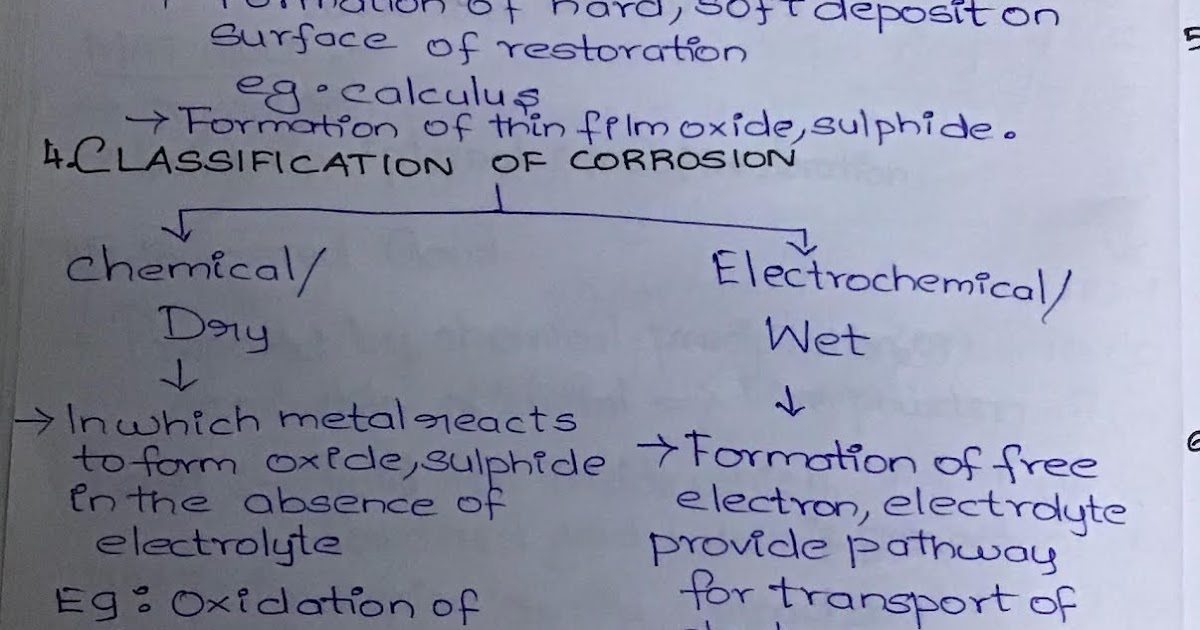 Formation of hard, soft deposit on
surface of restoration
eg. calculus
→ Formation of thin film oxide, sulphide.
4. CLASSIFICATION OF CORROSION
chemical/
Dry
→ In which metal reacts
to form oxide, sulphide
in the absence of
electrolyte
Eg: Oxidation of
Electrochemical/
Wet
→ Formation of free
electron, electrolyte
provide pathway
for transport of
5